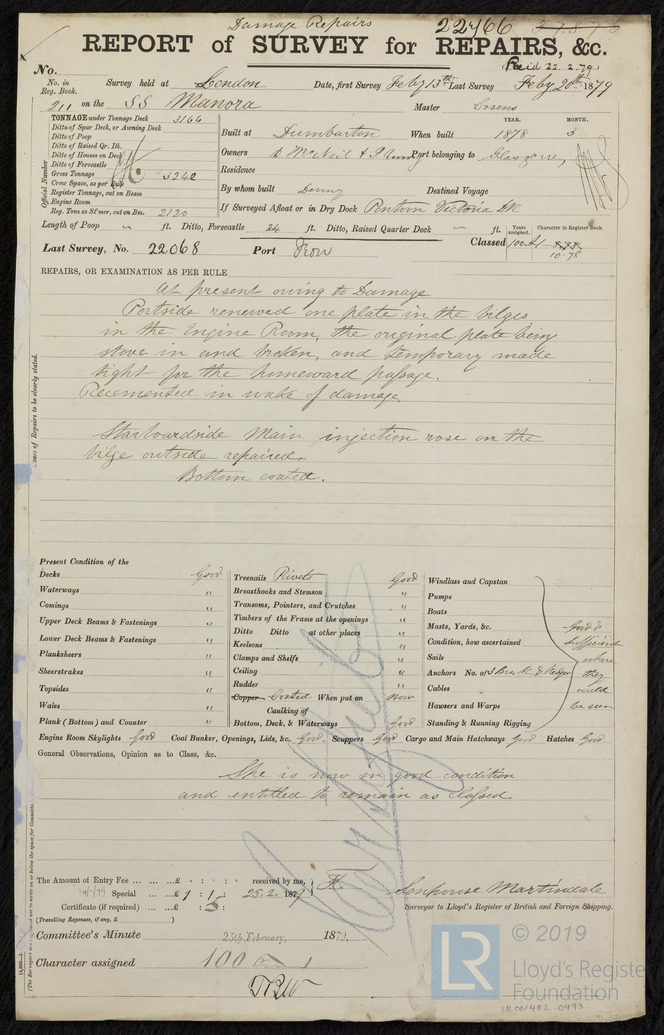 Damage Repairs
22466
REPORT of SURVEY for REPAIRS, &c.
No.
No. in Reg. Book. Survey held at London Date, first Survey Feby 13th Last Survey Feby 20th 1879
211 on the SS Manora Master Cosens
TONNAGE under Tonnage Deck 3166
Ditto of Spar Deck, or Awning Deck
Ditto of Poop
Ditto of Raised Qr. Dk.
Ditto of Houses on Deck
Ditto of Forecastle
Gross Tonnage 3242
Crew Space, as per Rule
Register Tonnage, cut on Beam
Engine Room
Reg. Tons as St'mer, cut on Bm. 2120
Official Number
YEAR. MONTH.
Built at Dumbarton When built 1878 3
Owners Port belonging to Glasgow
Residence
By whom built Denny Destined Voyage
If Surveyed Afloat or in Dry Dock Pontoon Victoria Dk
Length of Poop " ft. Ditto, Forecastle 24 ft. Ditto, Raised Quarter Deck " ft.
Years assigned. Character in Register Book.
Last Survey, No. 22068 Port Iron Classed 100 A1
10-78
REPAIRS, OR EXAMINATION AS PER RULE
At present owing to Damage
Portside renewed one plate in the bilges
in the Engine Room, the original plate being
stove in and broken, and temporary made
tight for the homeward passage.
Recemented in wake of damage
Starboardside Main injection rose on the
bilge outside repaired.
Bottom coated.
Present Condition of the
Decks Good
Waterways "
Comings "
Upper Deck Beams & Fastenings "
Lower Deck Beams & Fastenings "
Planksheers "
Sheerstrakes "
Topsides "
Wales "
Plank (Bottom) and Counter "
Treenails Rivets Good
Breasthooks and Stemson "
Transoms, Pointers, and Crutches "
Timbers of the Frame at the openings "
Ditto Ditto at other places "
Keelsons "
Clamps and Shelfs "
Ceiling "
Rudder "
Copper Coated When put on Now
Caulking of
Bottom, Deck, & Waterways Good
Windlass and Capstan
Pumps
Boats
Masts, Yards, &c. Good &
Condition, how ascertained sufficient
Sails where
Anchors No. of they
Cables could
Hawsers and Warps be seen
Standing & Running Rigging
Engine Room Skylights Good Coal Bunker, Openings, Lids, &c. Good Scuppers Good Cargo and Main Hatchways Good Hatches Good
General Observations, Opinion as to Class, &c.
She is now in good condition
and entitled to remain as classed.
The Amount of Entry Fee ... ... ...£ : : received by me,
Special ... ...£ 1 : 1 : 25.2. 1879
Certificate (if required) ... ...£ : 5 :
(Travelling Expenses, if any, £ )
Senhouse Martindale
Surveyor to Lloyd's Register of British and Foreign Shipping.
Committee's Minute 25th February, 1879.
Character assigned 100 A 1
LR © 2019
Lloyd's Register
Foundation
IRON482-0493